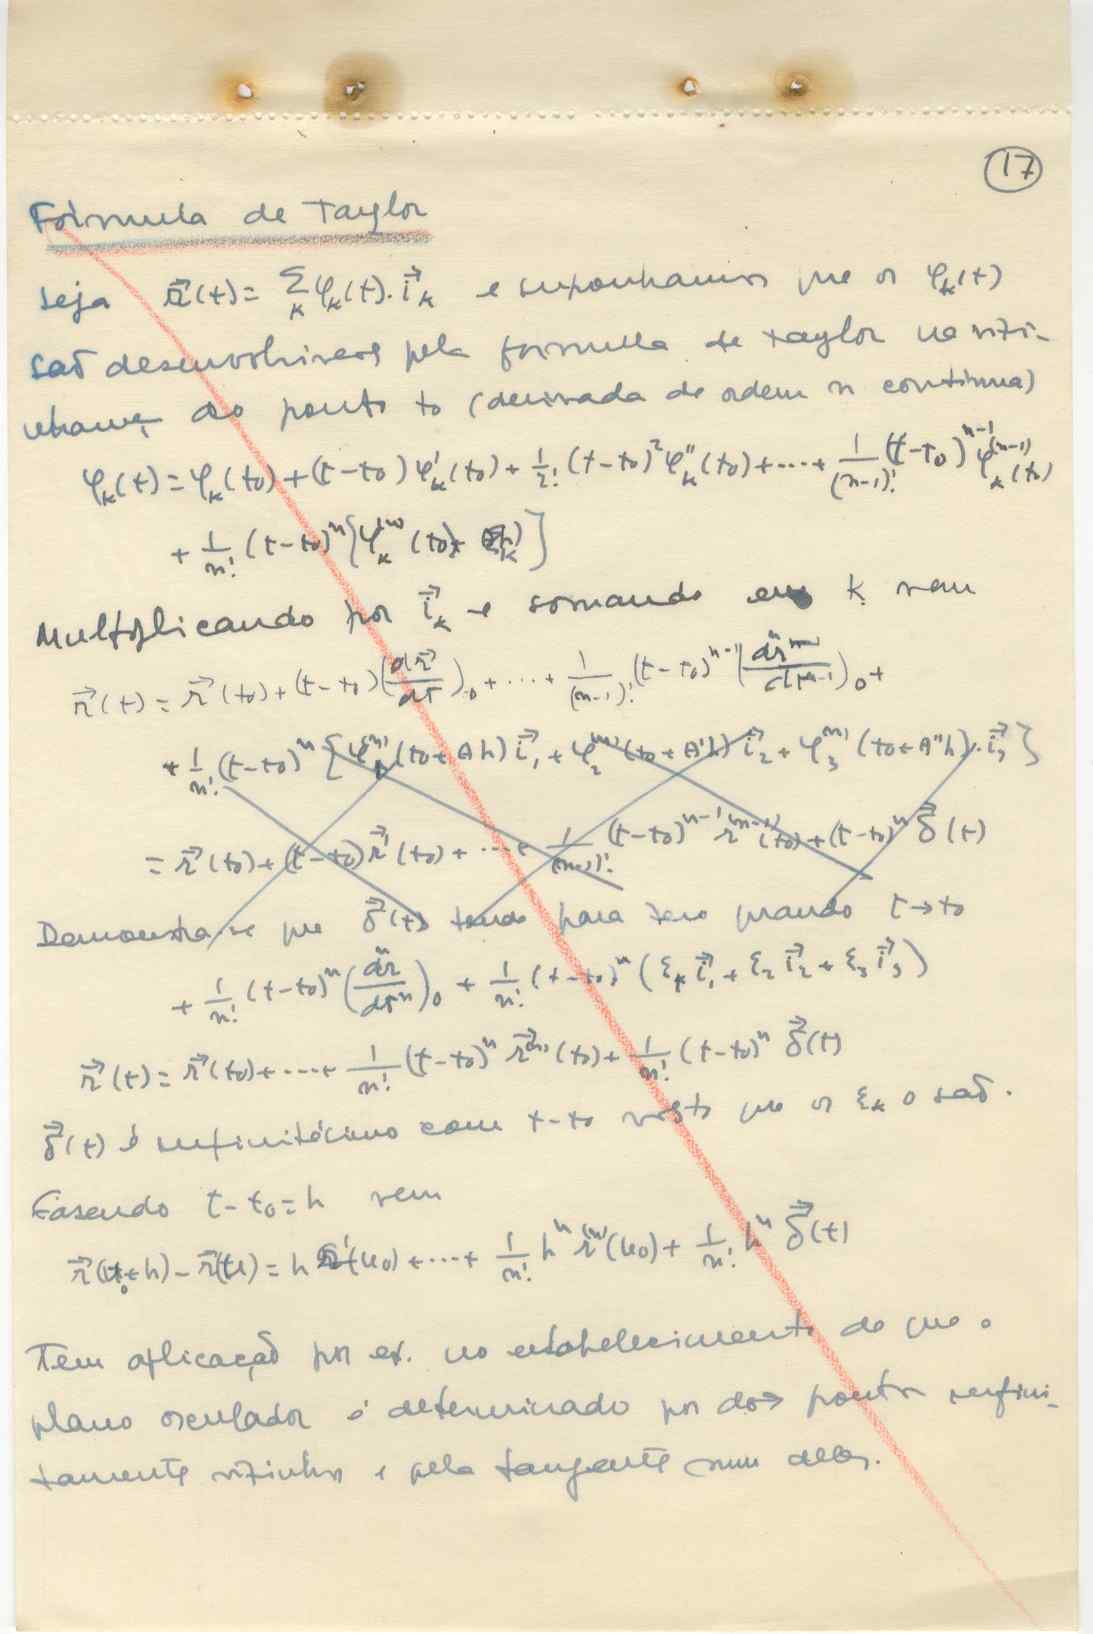 17
Fórmula de Taylor
Seja r⃗(t) = Σ_k φ_k(t)·i⃗_k e suponhamos que os φ_k(t)
são desenvolvíveis pela fórmula de Taylor na vizi-
nhança do ponto t₀ (derivada de ordem n contínua)
φ_k(t) = φ_k(t₀) + (t-t₀) φ'_k(t₀) + 1/2! (t-t₀)² φ''_k(t₀) + ···· + 1/(n-1)! (t-t₀)^{n-1} φ_k^{(n-1)}(t₀)
+ 1/n! (t-t₀)^n [φ_k^{(n)}(t₀) + ε_k]
Multiplicando por i⃗_k e somando em k vem
r⃗(t) = r⃗(t₀) + (t-t₀) (dr⃗/dt)₀ + ··· + 1/(n-1)! (t-t₀)^{n-1} (d^{n-1}r/dt^{n-1})₀ +
+ 1/n! (t-t₀)^n [φ_1^{(n)}(t₀+θh) i⃗₁ + φ_2^{(n)}(t₀+θ'h) i⃗₂ + φ_3^{(n)}(t₀+θ''h)·i⃗₃]
= r⃗(t₀) + (t-t₀) r⃗'(t₀) + ··· + 1/(n-1)! (t-t₀)^{n-1} r^{(n-1)}(t₀) + (t-t₀)^n δ⃗(t)
Demonstra-se que δ⃗(t) tende para zero quando t→t₀
+ 1/n! (t-t₀)^n (d^n r/dt^n)₀ + 1/n! (t-t₀)^n (ε₁ i⃗₁ + ε₂ i⃗₂ + ε₃ i⃗₃)
r⃗(t) = r⃗(t₀) + ···· + 1/n! (t-t₀)^n r⃗^{(n)}(t₀) + 1/n! (t-t₀)^n δ⃗(t)
δ⃗(t) é infinitésimo com t-t₀ visto que os ε_k o são.
Fazendo t-t₀ = h vem
r⃗(u₀+h) - r⃗(u) = h r'(u₀) + ···· + 1/n! h^n r^{(n)}(u₀) + 1/n! h^n δ⃗(t)
Tem aplicação por ex. no estabelecimento de que o
plano osculador é determinado por dois pontos infini-
tamente vizinhos e pela tangente num deles.